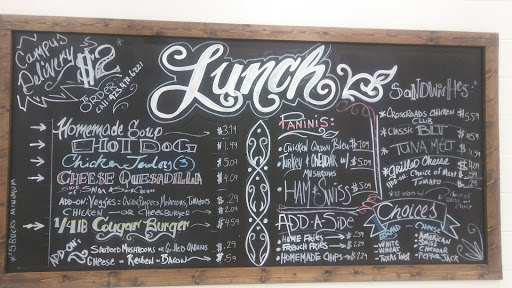 Campus
Delivery
$2
ORDER
Lunch
Homemade Soup $3.19
HOT DOG
Chicken Tenders (3)
CHEESE QUESADILLA
ADD-ON: VEGGIES - ONIONS PEPPERS MUSHROOMS TOMATOES
CHICKEN OR CHEESEBURGER
1/4 LB Cougar Burger $4.59
ADD-ON:
SAUTEED MUSHROOMS OR GRILLED ONIONS .29
CHEESE - REUBEN - BACON .59
* $5 BUCKS MINIMUM
PANINIS:
CHICKEN CORDON BLEU $7.09
TURKEY & CHEDDAR W/ $5.09
MUSHROOMS
HAM & SWISS $5.09
ADD-A-SIDE
HOME FRIES
FRENCH FRIES
HOMEMADE CHIPS
SANDWICHES
* CROSSROADS CHICKEN $5.59
CLUB
* CLASSIC BLT
* TUNA MELT
* Grilled Cheese
ADD-ON: CHOICE OF MEAT
TOMATO
Choices
BREAD
WHITE
WHEAT
TEXAS TOAST
CHEESE
AMERICAN
SWISS
CHEDDAR
PEPPER JACK